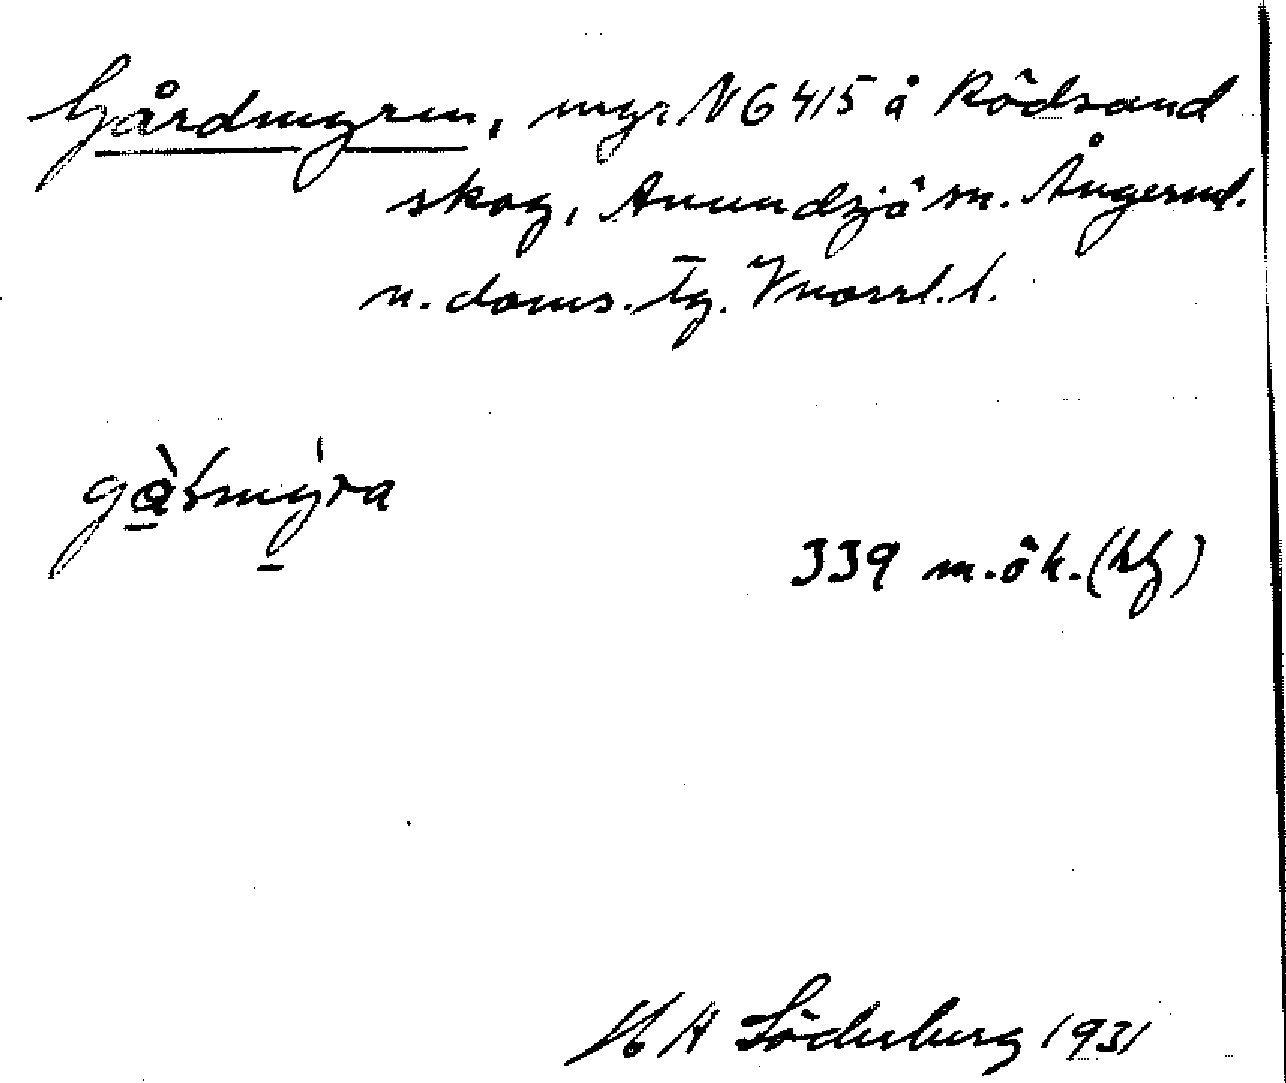 Gårdmyren, myr N 6415 å Rödsand
skog, Anundsjö sn. Ångerml.
n. doms. tg. Vnorrl. l.
339 m.ö.h. (hg)
Söderberg 1931